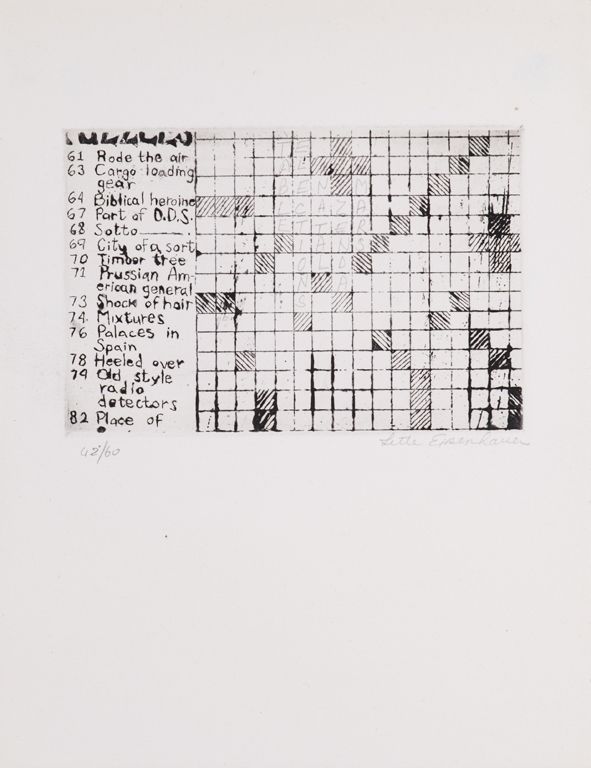 61 Rode the air
63 Cargo loading
gear
64 Biblical heroine
67 Part of D.D.S.
68 Sotto
69 City of a sort
70 Timber tree
71 Prussian Am-
erican general
73 Shock of hair
74 Mixtures
76 Palaces in
Spain
78 Heeled over
79 Old style
radio
detectors
82 Place of
TE
BEN M
LCAZA
ETTER
IANS
OLD
N A
S
42/60
Lette Eisenhauer